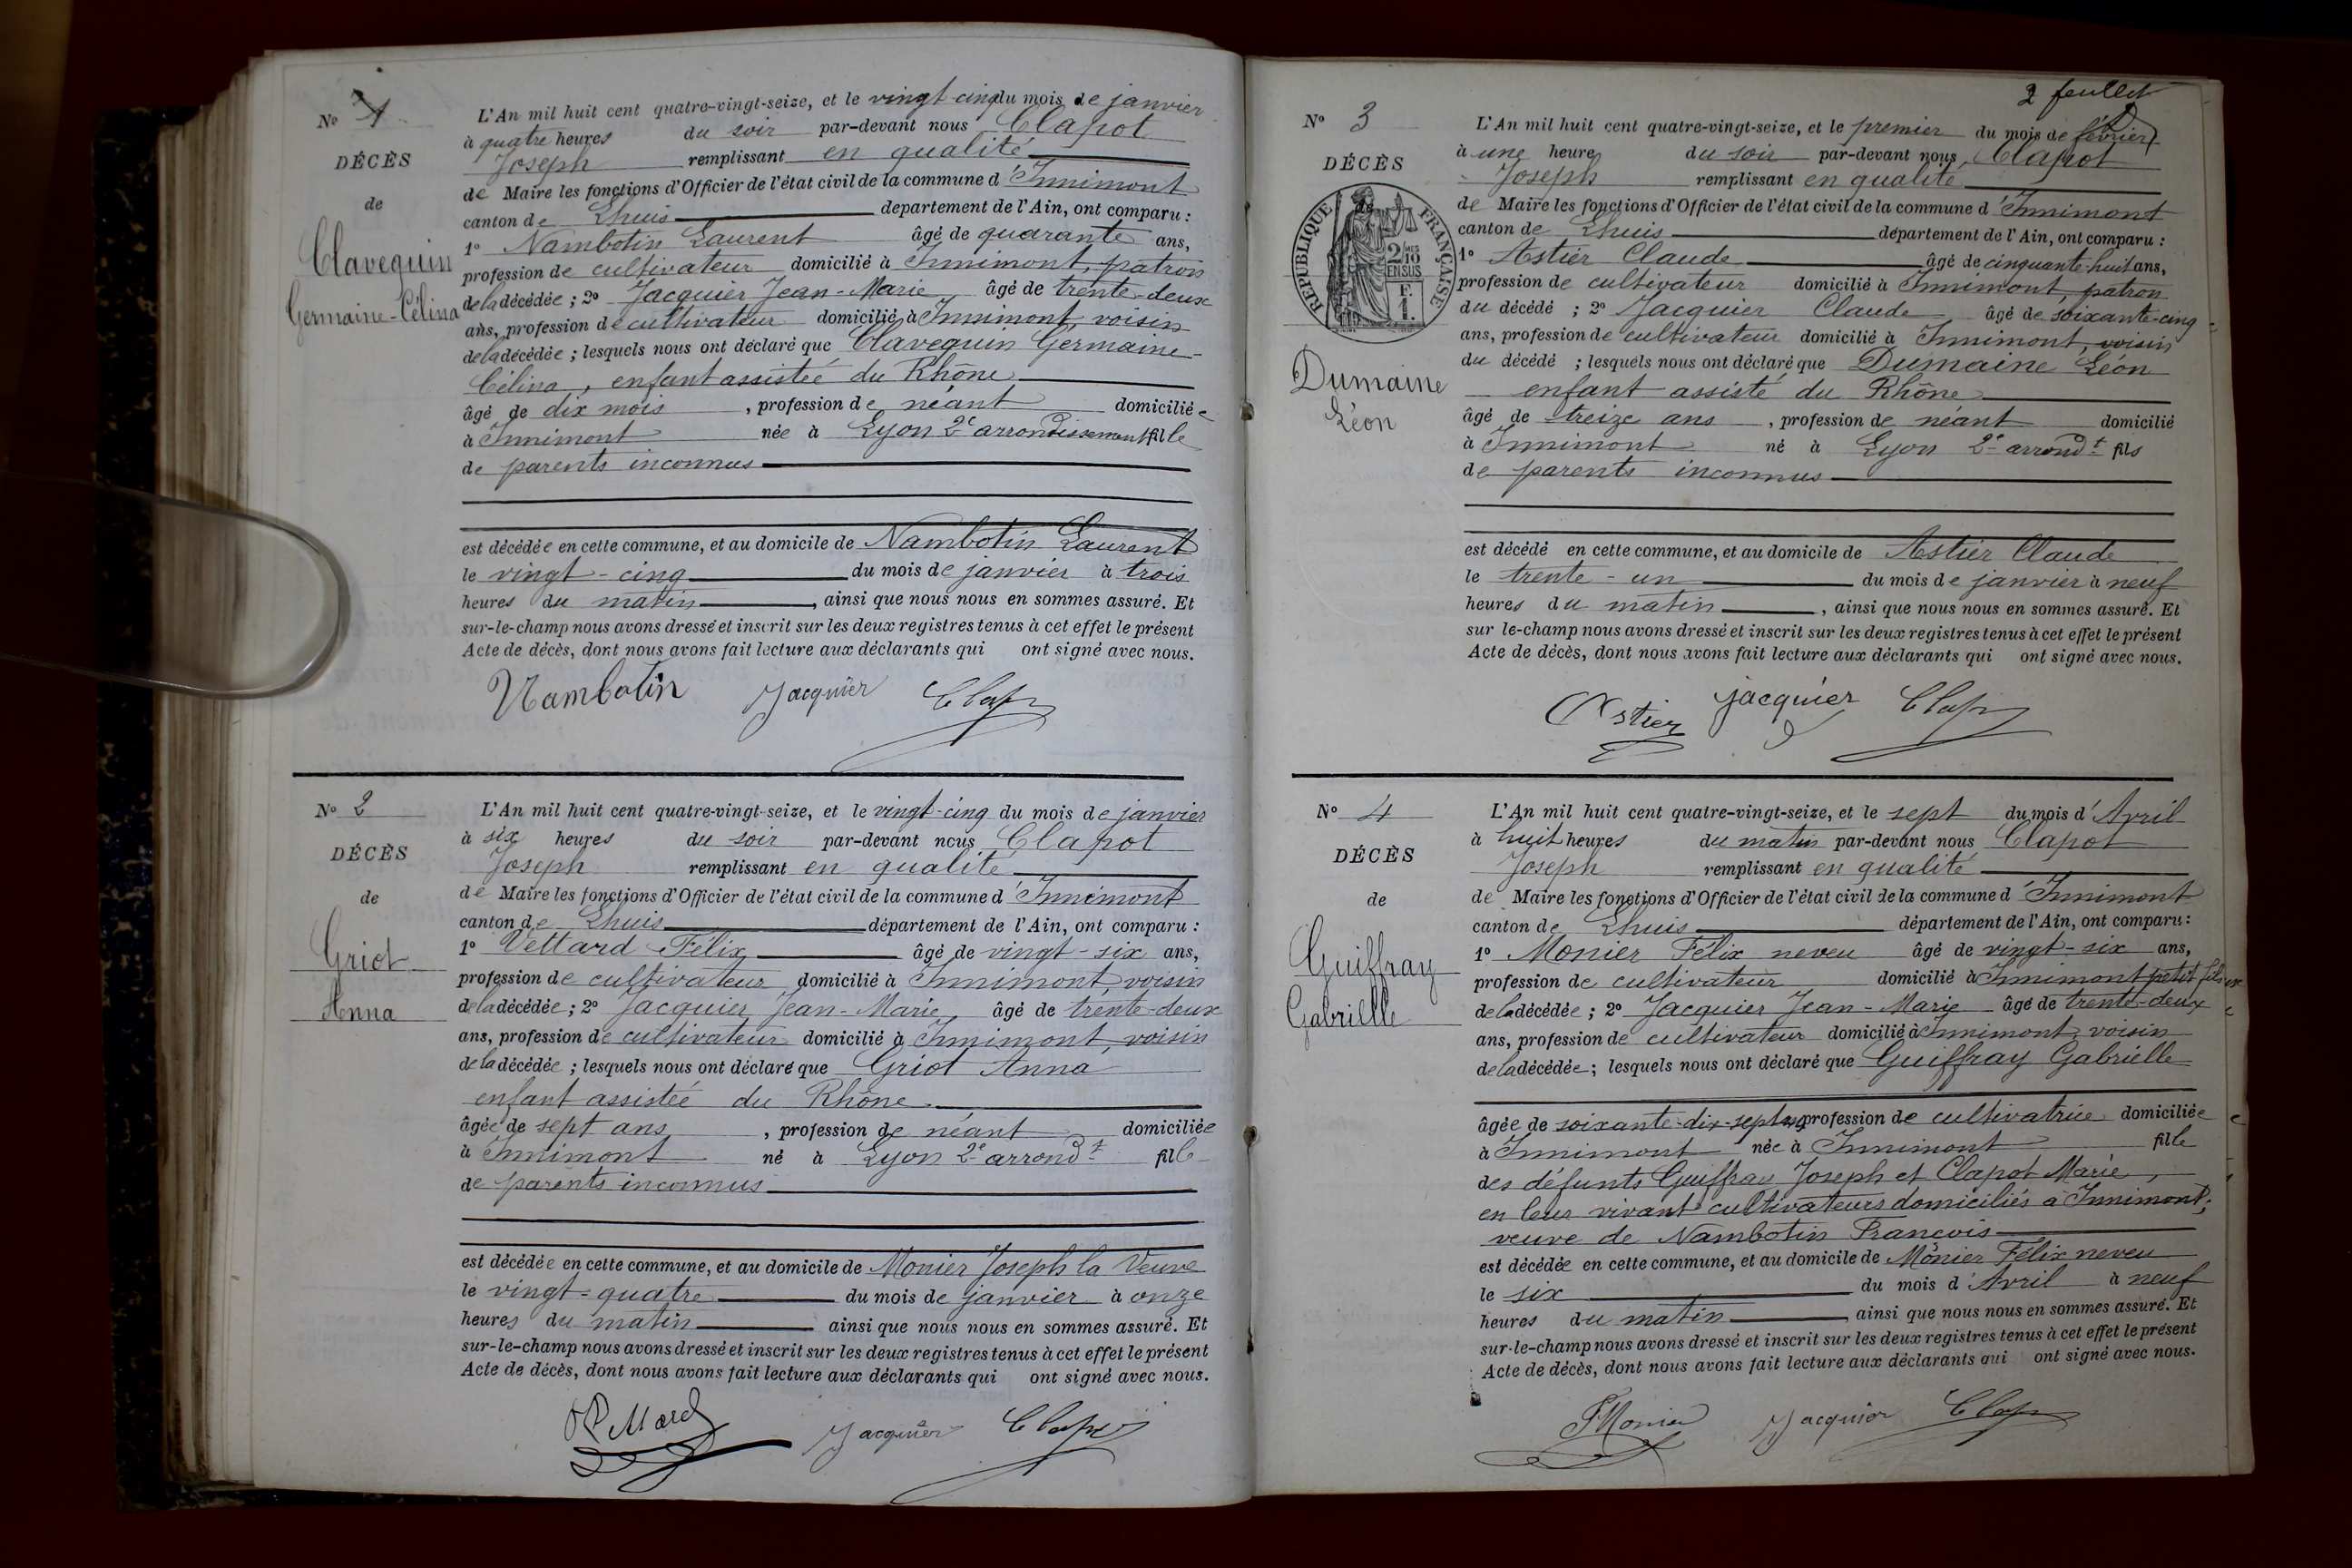 N° 1
DÉCÈS
de
Clavequin
Germaine-Célina
L'An mil huit cent quatre-vingt-seize, et le vingt-cinq du mois de janvier
à quatre heures du soir par-devant nous Clapot
Joseph remplissant en qualité
de Maire les fonctions d'Officier de l'état civil de la commune d'Innimont
canton de Lhuis departement de l'Ain, ont comparu :
1° Nambotin Laurent âgé de quarante ans,
profession de cultivateur domicilié à Innimont, patron
de la décédée ; 2° Jacquier Jean-Marie âgé de trente-deux
ans, profession de cultivateur domicilié à Innimont, voisin
de la décédée ; lesquels nous ont déclaré que Clavequin Germaine-
Célina, enfant assistée du Rhône
âgé de dix mois , profession de néant domiciliée
à Innimont née à Lyon 2e arrondissement fille
de parents inconnus
est décédée en cette commune, et au domicile de Nambotin Laurent
le vingt-cinq du mois de janvier à trois
heures du matin , ainsi que nous nous en sommes assuré. Et
sur-le-champ nous avons dressé et inscrit sur les deux registres tenus à cet effet le présent
Acte de décès, dont nous avons fait lecture aux déclarants qui ont signé avec nous.
Nambotin Jacquier Clapot
N° 2
DÉCÈS
de
Griot
Anna
L'An mil huit cent quatre-vingt-seize, et le vingt-cinq du mois de janvier
à six heures du soir par-devant nous Clapot
Joseph remplissant en qualité
de Maire les fonctions d'Officier de l'état civil de la commune d'Innimont
canton de Lhuis département de l'Ain, ont comparu :
1° Vettard Félix âgé de vingt-six ans,
profession de cultivateur domicilié à Innimont, voisin
de la décédée ; 2° Jacquier Jean-Marie âgé de trente-deux
ans, profession de cultivateur domicilié à Innimont, voisin
de la décédée ; lesquels nous ont déclaré que Griot Anna
enfant assistée du Rhône
âgée de sept ans , profession de néant domiciliée
à Innimont né à Lyon 2e arrondt fille
de parents inconnus
est décédée en cette commune, et au domicile de Monier Joseph la Veuve
le vingt-quatre du mois de janvier à onze
heures du matin ainsi que nous nous en sommes assuré. Et
sur-le-champ nous avons dressé et inscrit sur les deux registres tenus à cet effet le présent
Acte de décès, dont nous avons fait lecture aux déclarants qui ont signé avec nous.
Jacquier Clapot
2 feuillet
N° 3
DÉCÈS
RÉPUBLIQUE FRANÇAISE
2/10 EN SUS
F. 1.
Dumaine
Léon
L'An mil huit cent quatre-vingt-seize, et le premier du mois de février
à une heure du soir par-devant nous Clapot
Joseph remplissant en qualité
de Maire les fonctions d'Officier de l'état civil de la commune d'Innimont
canton de Lhuis département de l'Ain, ont comparu :
1° Astier Claude âgé de cinquante-huit ans,
profession de cultivateur domicilié à Innimont, patron
du décédé ; 2° Jacquier Claude âgé de soixante-cinq
ans, profession de cultivateur domicilié à Innimont, voisin
du décédé ; lesquels nous ont déclaré que Dumaine Léon
enfant assisté du Rhône
âgé de treize ans , profession de néant domicilié
à Innimont né à Lyon 2e arrondt fils
de parents inconnus
est décédé en cette commune, et au domicile de Astier Claude
le trente-un du mois de janvier à neuf
heures du matin , ainsi que nous nous en sommes assuré. Et
sur le-champ nous avons dressé et inscrit sur les deux registres tenus à cet effet le présent
Acte de décès, dont nous avons fait lecture aux déclarants qui ont signé avec nous.
Astier Jacquier Clapot
N° 4
DÉCÈS
de
Guiffray
Gabrielle
L'An mil huit cent quatre-vingt-seize, et le sept du mois d'Avril
à huit heures du matin par-devant nous Clapot
Joseph remplissant en qualité
de Maire les fonctions d'Officier de l'état civil de la commune d'Innimont
canton de Lhuis département de l'Ain, ont comparu :
1° Monier Félix neveu âgé de vingt-six ans,
profession de cultivateur domicilié à Innimont petit fils
de la décédée ; 2° Jacquier Jean-Marie âgé de trente-deux
ans, profession de cultivateur domicilié à Innimont, voisin
de la décédée ; lesquels nous ont déclaré que Guiffray Gabrielle
âgée de soixante-dix-sept ans profession de cultivatrice domiciliée
à Innimont née à Innimont fille
des défunts Guiffray Joseph et Clapot Marie,
en leur vivant cultivateurs domiciliés à Innimont;
veuve de Nambotin François
est décédée en cette commune, et au domicile de Monier Félix neveu
le six du mois d'Avril à neuf
heures du matin ainsi que nous nous en sommes assuré. Et
sur-le-champ nous avons dressé et inscrit sur les deux registres tenus à cet effet le présent
Acte de décès, dont nous avons fait lecture aux déclarants qui ont signé avec nous.
F Monier Jacquier Clapot